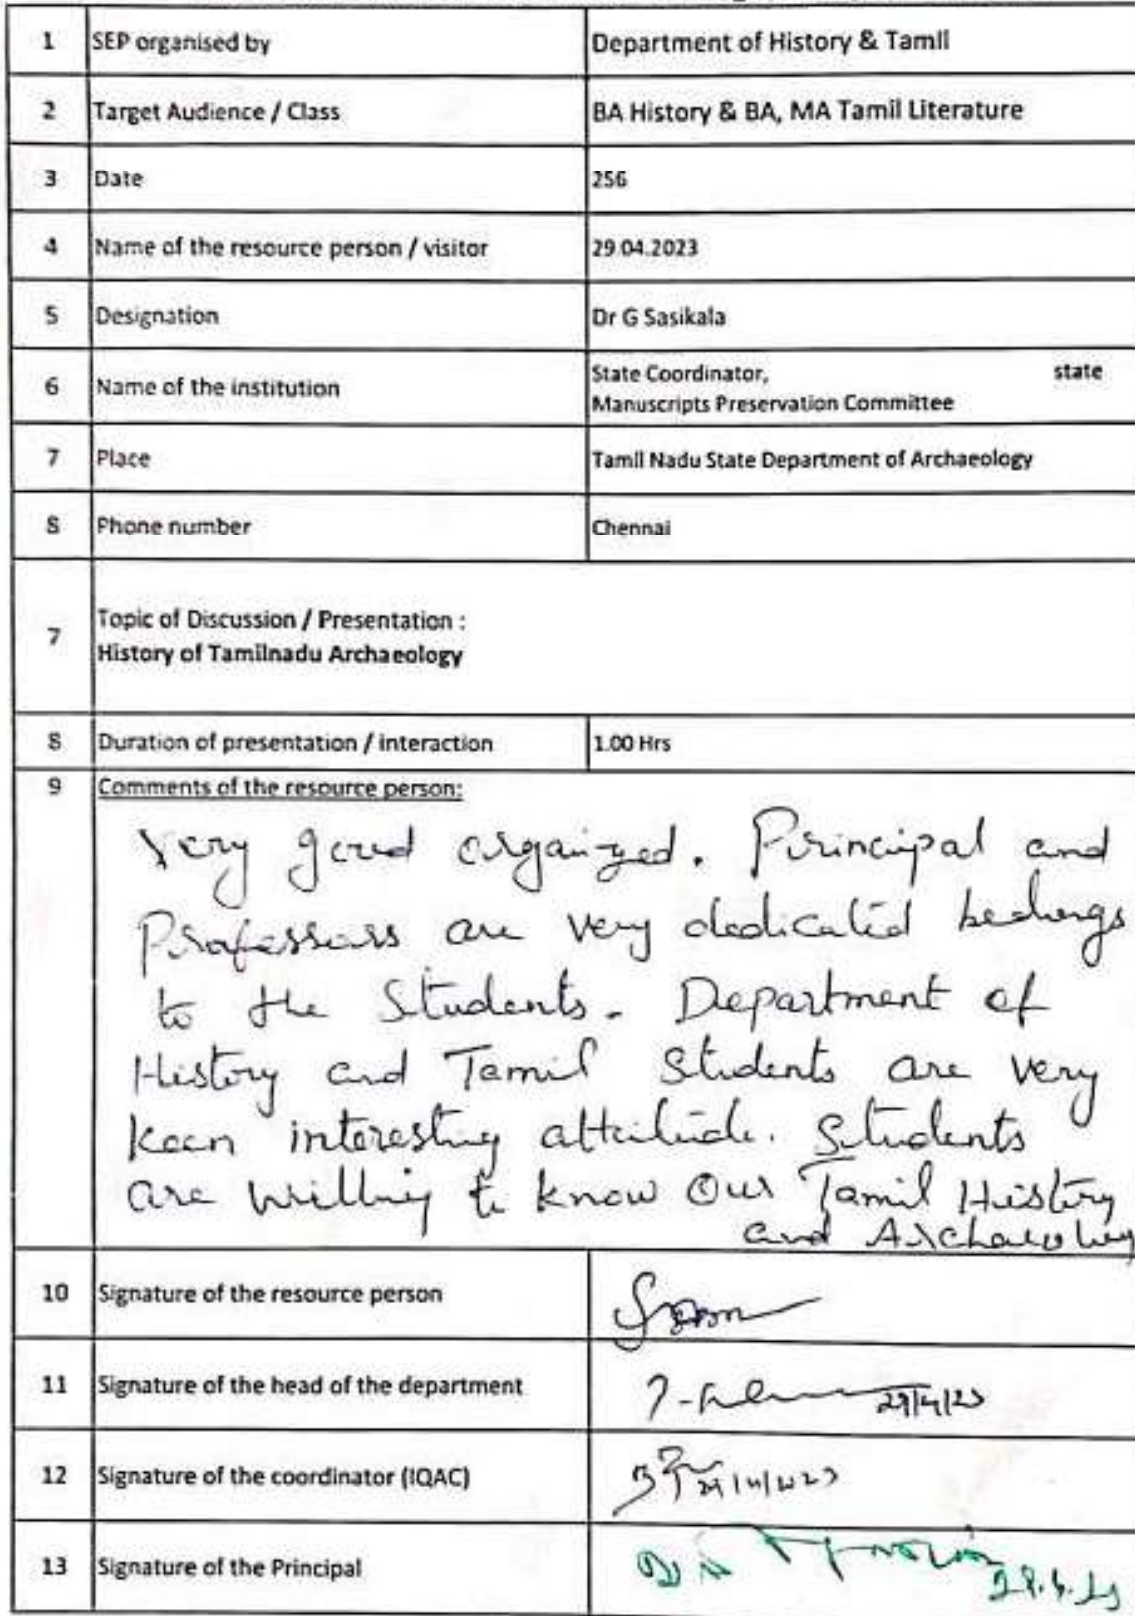 1 SEP organised by Department of History & Tamil
2 Target Audience / Class BA History & BA, MA Tamil Literature
3 Date 256
4 Name of the resource person / visitor 29.04.2023
5 Designation Dr G Sasikala
6 Name of the institution State Coordinator, state
Manuscripts Preservation Committee
7 Place Tamil Nadu State Department of Archaeology
8 Phone number Chennai
7 Topic of Discussion / Presentation :
History of Tamilnadu Archaeology
8 Duration of presentation / interaction 1.00 Hrs
9 Comments of the resource person:
Very good organized. Principal and
Professors are very dedicated
to the Students. Department of
History and Tamil Students are very
keen interesting attitude. Students
are willing to know Our Tamil History
and Archaeology
10 Signature of the resource person
11 Signature of the head of the department 29/4/23
12 Signature of the coordinator (IQAC)
13 Signature of the Principal